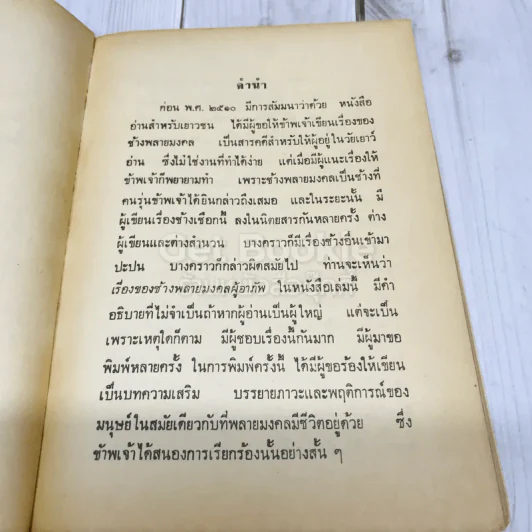 คำนำ
ก่อน พ.ศ. ๒๕๑๐ มีการสัมมนาว่าด้วย หนังสือ
อ่านสำหรับเยาวชน ได้มีผู้ขอให้ข้าพเจ้าเขียนเรื่องของ
ช้างพลายมงคล เป็นสารคดีสำหรับให้ผู้อยู่ในวัยเยาว์
อ่าน ซึ่งไม่ใช่งานที่ทำได้ง่าย แต่เมื่อมีผู้แนะเรื่องให้
ข้าพเจ้าก็พยายามทำ เพราะช้างพลายมงคลเป็นช้างที่
คนรุ่นข้าพเจ้าได้ยินกล่าวถึงเสมอ และในระยะนั้น มี
ผู้เขียนเรื่องช้างเชือกนี้ ลงในนิตยสารกันหลายครั้ง ต่าง
ผู้เขียนและต่างสำนวน บางคราวก็มีเรื่องช้างอื่นเข้ามา
ปะปน บางคราวก็กล่าวผิดสมัยไป ท่านจะเห็นว่า
เรื่องของช้างพลายมงคลผู้อาภัพ ในหนังสือเล่มนี้ มีคำ
อธิบายที่ไม่จำเป็นถ้าหากผู้อ่านเป็นผู้ใหญ่ แต่จะเป็น
เพราะเหตุใดก็ตาม มีผู้ชอบเรื่องนี้กันมาก มีผู้มาขอ
พิมพ์หลายครั้ง ในการพิมพ์ครั้งนี้ ได้มีผู้ขอร้องให้เขียน
เป็นบทความเสริม บรรยายภาวะและพฤติการณ์ของ
มนุษย์ในสมัยเดียวกับที่พลายมงคลมีชีวิตอยู่ด้วย ซึ่ง
ข้าพเจ้าได้สนองการเรียกร้องนั้นอย่างสั้น ๆ